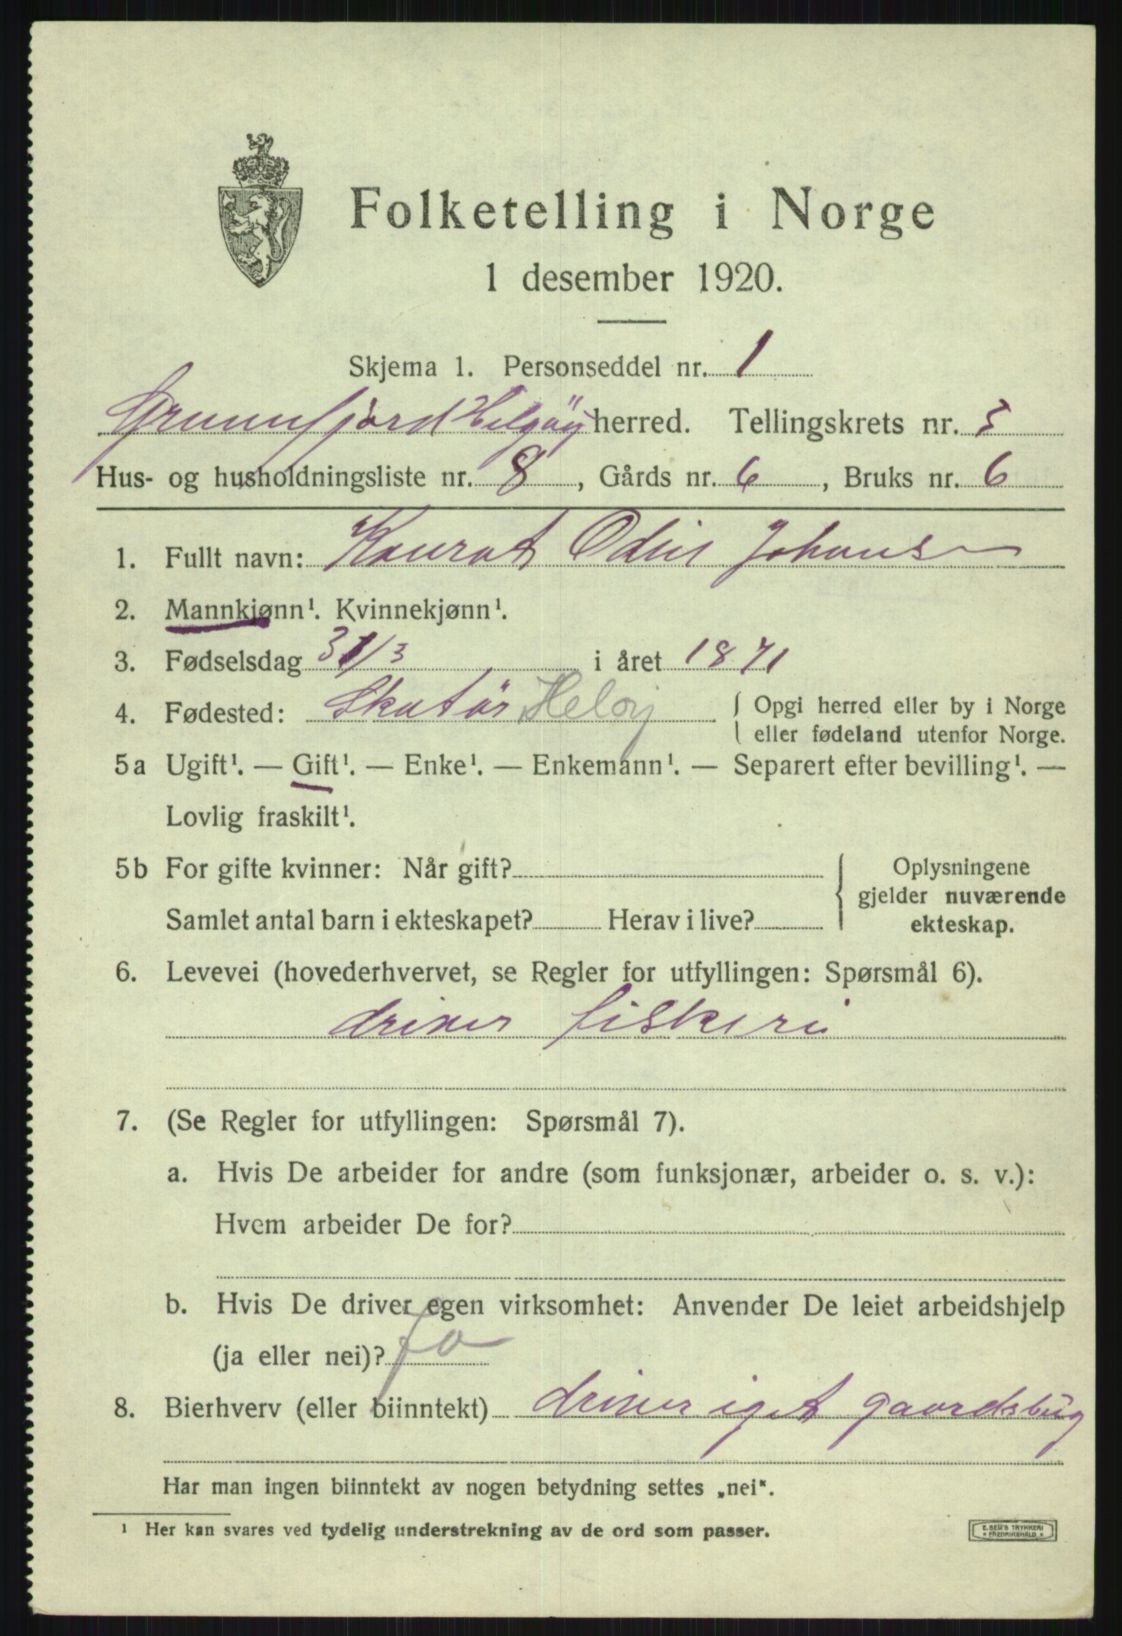 Folketelling i Norge
1 desember 1920.
Skjema 1. Personseddel nr. 1
Grunnfjord Helgøy herred. Tellingskrets nr. 3
Hus- og husholdningsliste nr. 8, Gårds nr. 6, Bruks nr. 6
1. Fullt navn: Konrat Odin Johans
2. Mannkjønn¹. Kvinnekjønn¹.
3. Fødselsdag 31/3 i året 1871
4. Fødested: Skatør Heløy { Opgi herred eller by i Norge
eller fødeland utenfor Norge.
5a Ugift¹. — Gift¹. — Enke¹. — Enkemann¹. — Separert efter bevilling¹. —
Lovlig fraskilt¹.
5b For gifte kvinner: Når gift? { Oplysningene
gjelder nuværende
Samlet antal barn i ekteskapet? Herav i live? ekteskap.
6. Levevei (hovederhvervet, se Regler for utfyllingen: Spørsmål 6).
driver fiskeri
7. (Se Regler for utfyllingen: Spørsmål 7).
a. Hvis De arbeider for andre (som funksjonær, arbeider o. s. v.):
Hvem arbeider De for?
b. Hvis De driver egen virksomhet: Anvender De leiet arbeidshjelp
(ja eller nei)? Ja
8. Bierhverv (eller biinntekt) driver iget gaardsbrug
Har man ingen biinntekt av nogen betydning settes „nei“.
¹ Her kan svares ved tydelig understrekning av de ord som passer.
E. SEM'S TRYKKERI
FREDRIKSHALD